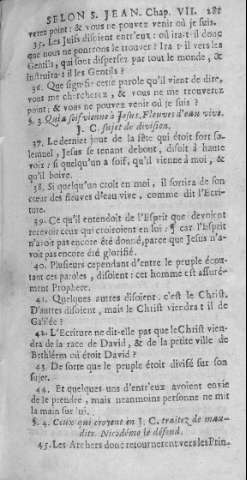 SELON S. JEAN. Chap. VII. 181
verez point: & vous ne pouvez venir où je suis.
35. Les Juifs disoient entr'eux: où ira-t-il donc
que nous ne pourrons le trouver! Ira t-il vers les
Gentils, qui sont dispersez par tout le monde, &
instruira-t-il les Gentils?
36. Que signifie cette parole qu'il vient de dire,
vous me chercherez, & vous ne me trouverez
point; & vous ne pouvez venir où je suis?
§. 3. Qui a soif vienne à Jesus. Fleuves d'eau vive.
J. C. sujet de division.
37. Le dernier jour de la fête qui étoit fort so-
lemnel, Jesus se tenant debout, disoit à haute
voix: si quelqu'un a soif, qu'il vienne à moi, &
qu'il boive.
38. Si quelqu'un croit en moi, il sortira de son
cœur des fleuves d'eau vive, comme dit l'Ecri-
ture.
39. Ce qu'il entendoit de l'Esprit que devoient
recevoir ceux qui croiroient en lui: ¶ car l'Esprit
n'avoit pas encore été donné, parce que Jesus n'a-
voit pas encore été glorifié.
40. Plusieurs cependant d'entre le peuple écou-
tant ces paroles, disoient: cet homme est assuré-
ment Prophete.
41. Quelques autres disoient, c'est le Christ.
D'autres disoient, mais le Christ viendra t il de
Galilée?
42. L'Ecriture ne dit-elle pas que le Christ vien-
dra de la race de David, & de la petite ville de
Bethléem où étoit David?
43. De sorte que le peuple étoit divisé sur son
sujet.
44. Et quelques uns d'entr'eux avoient envie
de le prendre, mais neanmoins personne ne mit
la main sur lui.
§. 4. Ceux qui croyent en J. C. traitez de mau-
dits. Nicodéme le défend.
45. Les Archers donc retournerent vers les Prin-